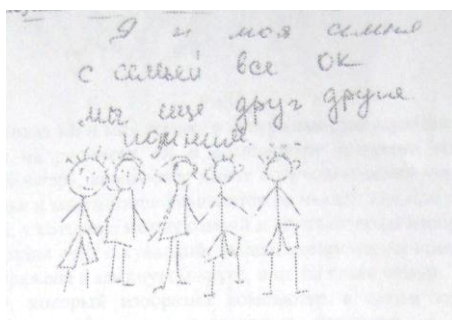 Я и моя семья
с семьей все ок
мы еще друг друга
помним